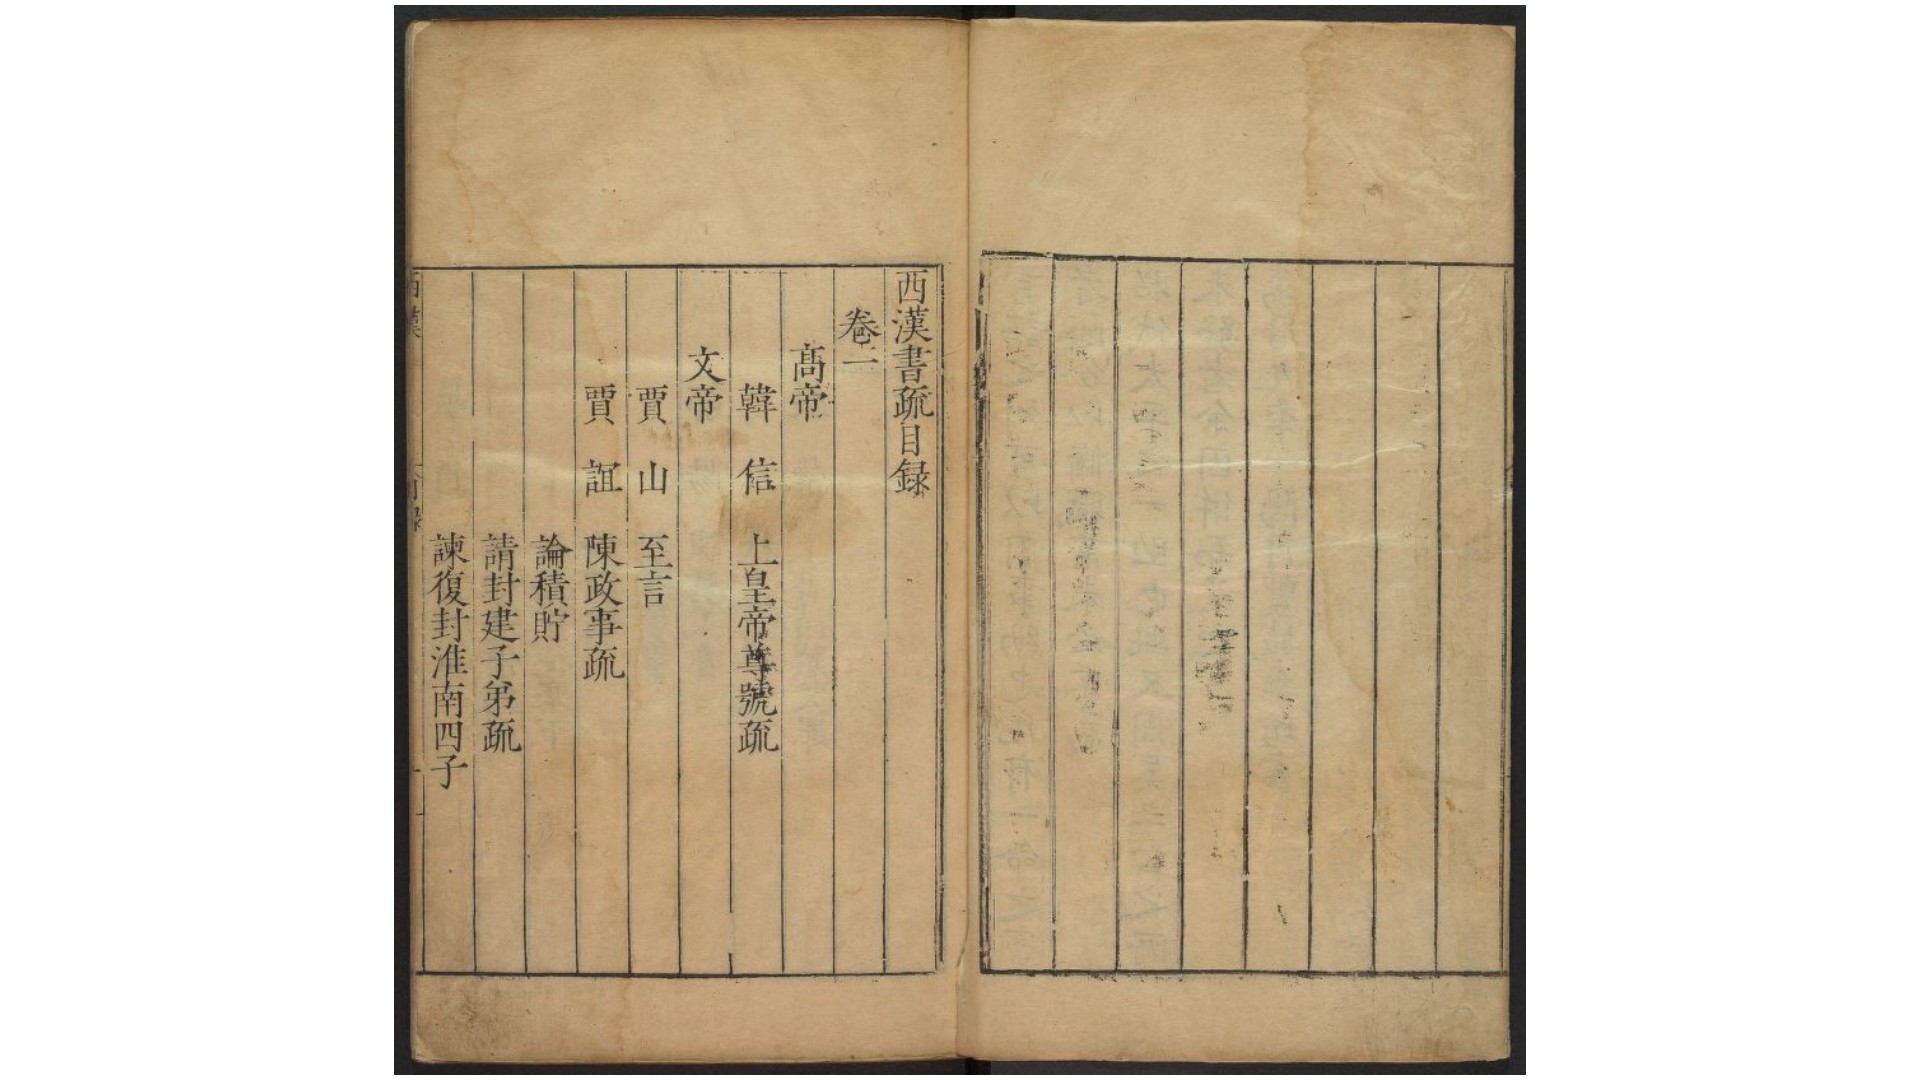 西漢書疏目録
卷一
髙帝
韓信 上皇帝尊號疏
文帝
賈山 至言
賈誼 陳政事疏
論積貯
請封建子弟疏
諫復封淮南四子
西漢 目録